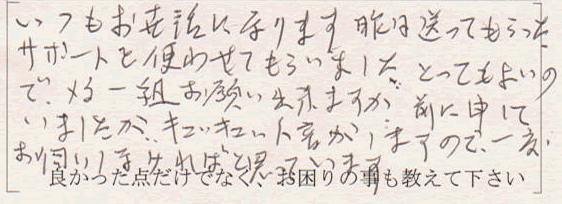 いつもお世話になります 昨日送ってもらった
サポートを使わせてもらいました とってもよいの
で、一組お願い出来ますか 前に申して
いましたが、キュッキュッ音がしますので、一度
お伺いしなければと思っています
良かった点だけでなく、お困りの事も教えて下さい